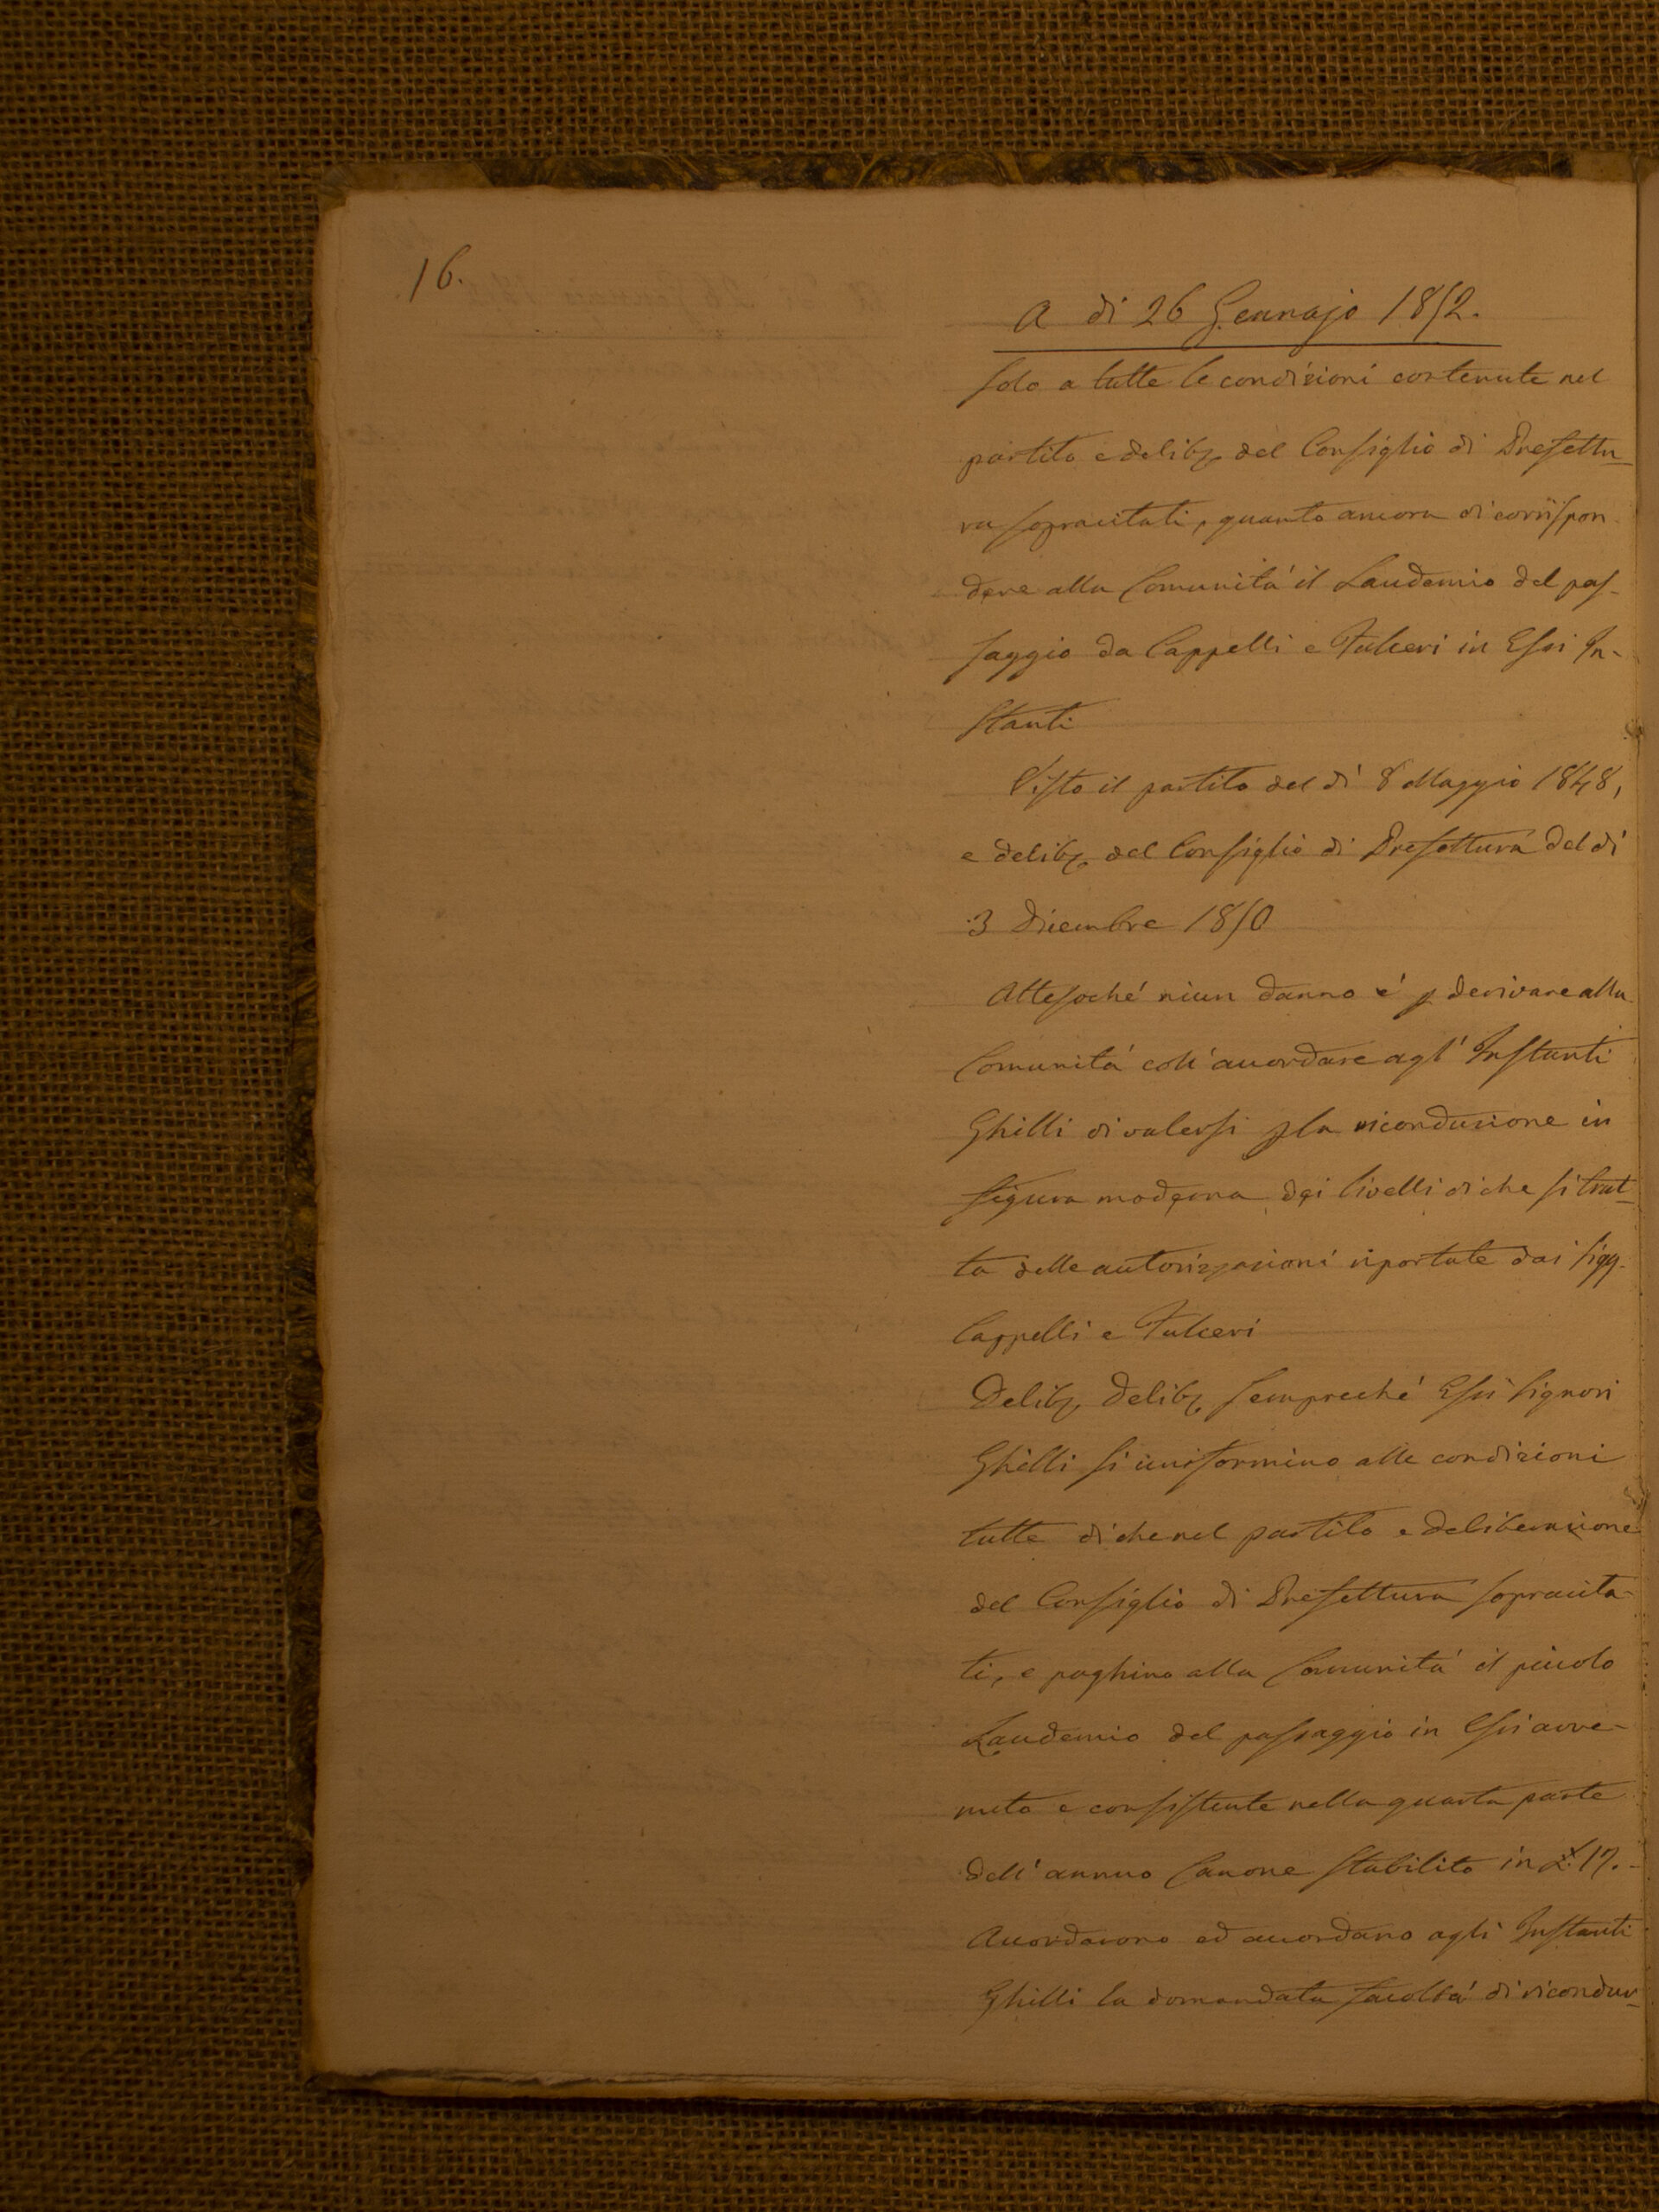 16.
A di 26 Gennajo 1852.
solo a tutte le condizioni contenute nel
partito e delib. del Consiglio di Prefettu_
ra sopracitati, quanto ancora di corrispon
dere alla Comunità il Laudemio del pas-
saggio da Cappelli e Fulceri in Essi In-
stanti
Visto il partito del dì 8 Maggio 1848,
e delib. del Consiglio di Prefettura del dì
3 Dicembre 1850
Attesoché niun danno é p derivare alla
Comunità coll'accordare agl'Instanti
Ghilli di valersi p la riconduzione in
figura moderna dei livelli di che si trat_
ta delle autorizzazioni riportate dai Sigg.
Cappelli e Fulceri
Delib. Delib. sempreché Essi Signori
Ghilli si uniformino alle condizioni
tutte di che nel partito e deliberazione
del Consiglio di Prefettura sopracita-
ti, e paghino alla Comunità il piccolo
Laudemio del passaggio in Essi avve-
nuto e consistente nella quarta parte
dell'annuo Canone stabilito in £ 17.-
Accordarono ed accordano agli Instanti
Ghilli la domandata facoltà di ricondur_